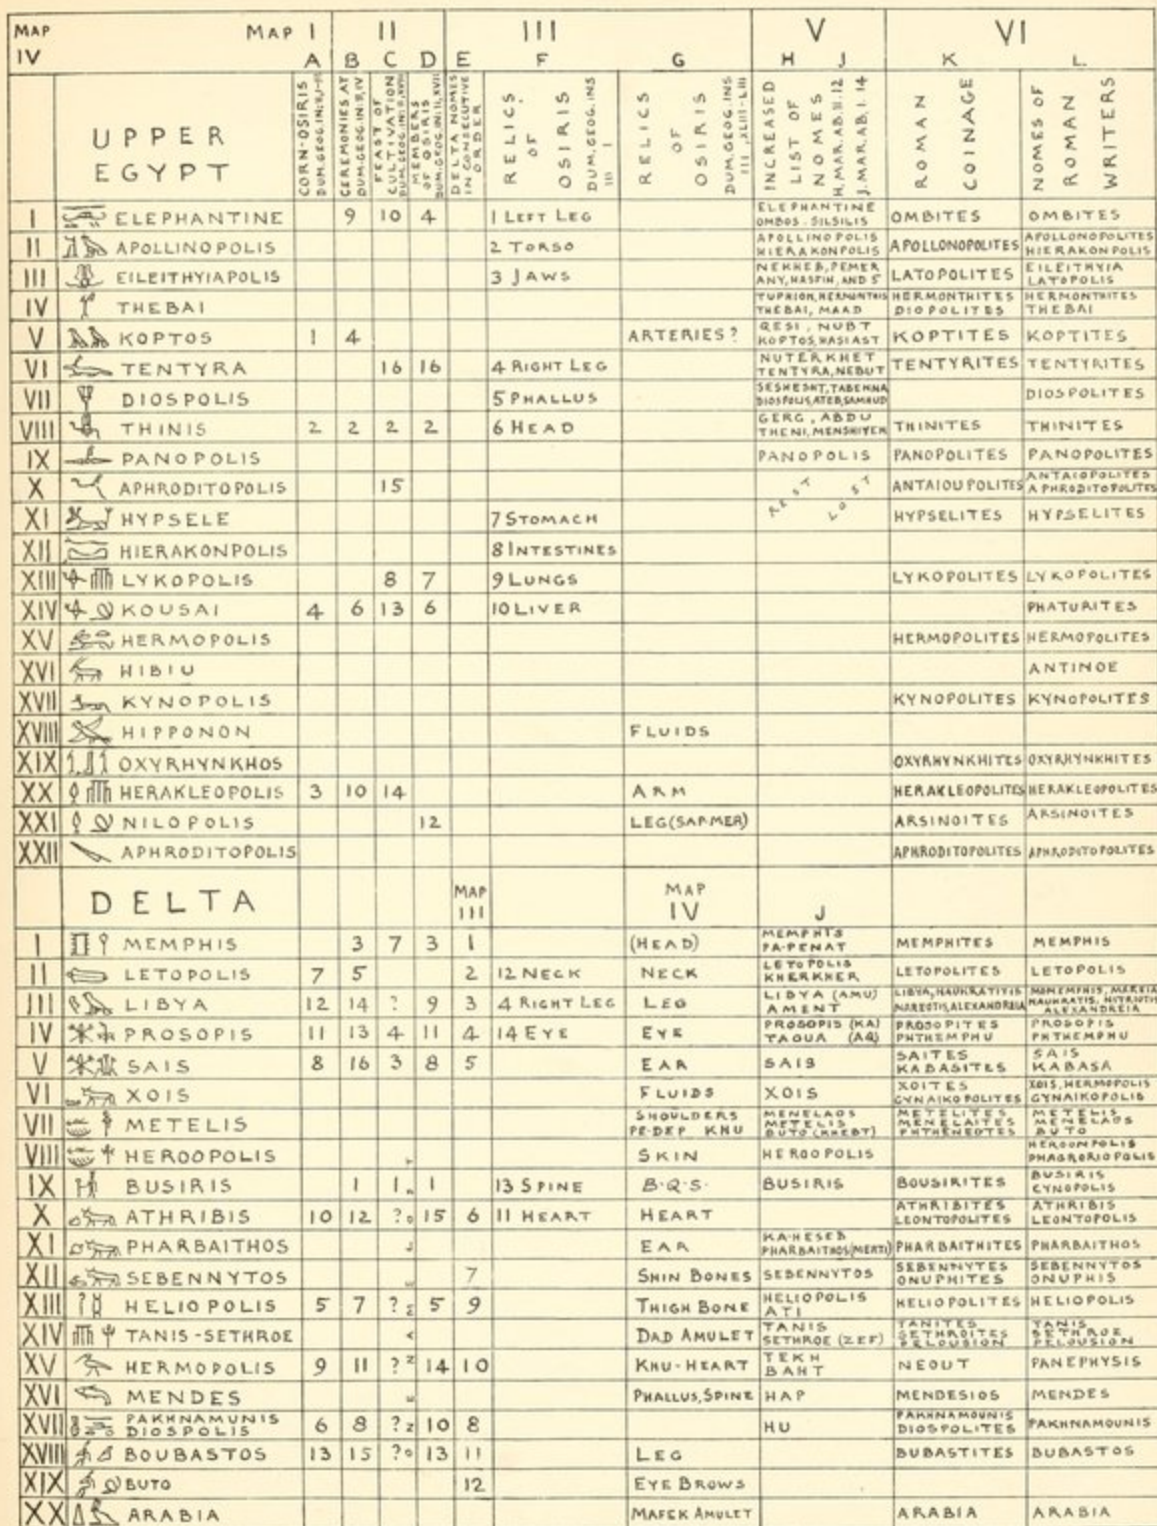 MAP IV MAP I II III V VI
A B C D E F G H J K L
UPPER EGYPT
CORN-OSIRIS
CEREMONIES AT DUM.GEOG.IN.II,IV
FEAST OF CULTIVATION
MEMBERS OF OSIRIS
DELTA NOMES IN CONSECUTIVE ORDER
RELICS OF OSIRIS DUM.GEOG.INS III I
RELICS OF OSIRIS DUM.GEOG.INS III, XLIII-LIII
INCREASED LIST OF NOMES H.MAR.AB.II.12 J.MAR.AB.I.14
ROMAN COINAGE
NOMES OF ROMAN WRITERS
I ELEPHANTINE 9 10 4 1 LEFT LEG ELEPHANTINE OMBOS-SILSILIS OMBITES OMBITES
II APOLLINOPOLIS 2 TORSO APOLLINOPOLIS HIERAKONPOLIS APOLLONOPOLITES APOLLONOPOLITES HIERAKONPOLIS
III EILEITHYIAPOLIS 3 JAWS NEKHEB, PEMER ANY, HASFIN, AND 5 LATOPOLITES EILEITHYIA LATOPOLIS
IV THEBAI TUPHION, HERMONTHIS THEBAI, MAAD HERMONTHITES DIOPOLITES HERMONTHITES THEBAI
V KOPTOS 1 4 ARTERIES? QESI, NUBT KOPTOS, HASIAST KOPTITES KOPTITES
VI TENTYRA 16 16 4 RIGHT LEG NUTERKHET TENTYRA, NEBUT TENTYRITES TENTYRITES
VII DIOSPOLIS 5 PHALLUS SESHESHT, TABENNA DIOSPOLIS, ATEB, SAMHUD DIOSPOLITES
VIII THINIS 2 2 2 2 6 HEAD GERG, ABDU THENI, MENSHIYEH THINITES THINITES
IX PANOPOLIS PANOPOLIS PANOPOLITES PANOPOLITES
X APHRODITOPOLIS 15 REST LOST ANTAIOUPOLITES ANTAIOPOLITES APHRODITOPOLITES
XI HYPSELE 7 STOMACH HYPSELITES HYPSELITES
XII HIERAKONPOLIS 8 INTESTINES
XIII LYKOPOLIS 8 7 9 LUNGS LYKOPOLITES LYKOPOLITES
XIV KOUSAI 4 6 13 6 10 LIVER PHATURITES
XV HERMOPOLIS HERMOPOLITES HERMOPOLITES
XVI HIBIU ANTINOE
XVII KYNOPOLIS KYNOPOLITES KYNOPOLITES
XVIII HIPPONON FLUIDS
XIX OXYRHYNKHOS OXYRHYNKHITES OXYRHYNKHITES
XX HERAKLEOPOLIS 3 10 14 ARM HERAKLEOPOLITES HERAKLEOPOLITES
XXI NILOPOLIS 12 LEG (SAP.MER) ARSINOITES ARSINOITES
XXII APHRODITOPOLIS APHRODITOPOLITES APHRODITOPOLITES
DELTA MAP III MAP IV J
I MEMPHIS 3 7 3 1 (HEAD) MEMPHIS PA-PENAT MEMPHITES MEMPHIS
II LETOPOLIS 7 5 2 12 NECK NECK LETOPOLIS KHERKHER LETOPOLITES LETOPOLIS
III LIBYA 12 14 ? 9 3 4 RIGHT LEG LEG LIBYA (AMU) AMENT LIBYA, NAUKRATITIS MAREOTIS, ALEXANDREIA MOMEMPHIS, MAREIA NAUKRATIS, NITRIOTIS ALEXANDREIA
IV PROSOPIS 11 13 4 11 4 14 EYE EYE PROSOPIS (KA) TAOUA (AQ) PROSOPITES PHTHEMPHU PROSOPIS PHTHEMPHU
V SAIS 8 16 3 8 5 EAR SAIS SAITES KABASITES SAIS KABASA
VI XOIS FLUIDS XOIS XOITES GYNAIKOPOLITES XOIS, HERMOPOLIS GYNAIKOPOLIS
VII METELIS SHOULDERS PE-DEP KHU MENELAOS METELIS BUTO (KHEBT) METELITES MENELAITES PHTHENEOTES METELIS MENELAOS BUTO
VIII HEROOPOLIS SKIN HEROOPOLIS HEROONPOLIS PHAGRORIOPOLIS
IX BUSIRIS 1 1 1 13 SPINE B.Q.S. BUSIRIS BOUSIRITES BUSIRIS CYNOPOLIS
X ATHRIBIS 10 12 ? 15 6 11 HEART HEART ATHRIBITES LEONTOPOLITES ATHRIBIS LEONTOPOLIS
XI PHARBAITHOS EAR KA-HESEB PHARBAITHOS (MERTI) PHARBAITHITES PHARBAITHOS
XII SEBENNYTOS 7 SHIN BONES SEBENNYTOS SEBENNYTES ONUPHITES SEBENNYTOS ONUPHIS
XIII HELIOPOLIS 5 7 ? 5 9 THIGH BONE HELIOPOLIS ATI HELIOPOLITES HELIOPOLIS
XIV TANIS-SETHROE DAD AMULET TANIS SETHROE (ZEF) TANITES SETHROITES PELOUSION TANIS SETHROE PELOUSION
XV HERMOPOLIS 9 11 ? 14 10 KHU-HEART TEKH BAHT NEOUT PANEPHYSIS
XVI MENDES PHALLUS, SPINE HAP MENDESIOS MENDES
XVII PAKHNAMUNIS DIOSPOLIS 6 8 ? 10 8 HU PAKHNAMOUNIS DIOSPOLITES PAKHNAMOUNIS
XVIII BOUBASTOS 13 15 ? 13 11 LEG BUBASTITES BUBASTOS
XIX BUTO 12 EYE BROWS
XX ARABIA MAFEK AMULET ARABIA ARABIA